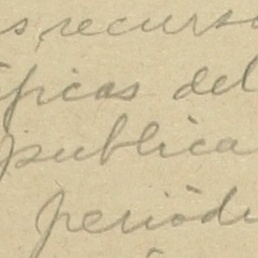 s recurso
ificas del
publica
periód